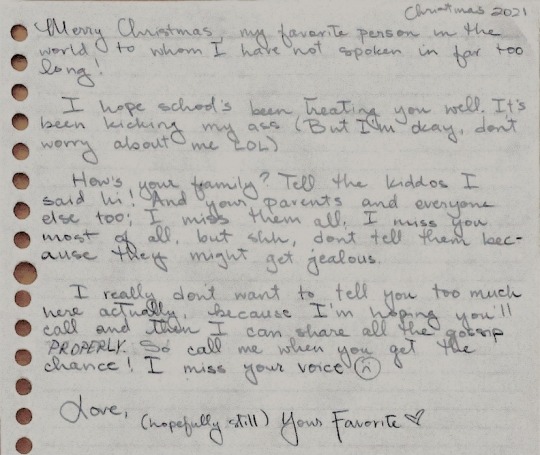 Christmas 2021
Merry Christmas, my favorite person in the
world to whom I have not spoken in far too
long!
I hope school's been treating you well. It's
been kicking my ass (But I'm okay, don't
worry about me LOL)
How's your family? Tell the kiddos I
said hi! And your parents and everyone
else too; I miss them all. I miss you
most of all, but shh, don't tell them bec-
ause they might get jealous.
I really don't want to tell you too much
here actually, because I'm hoping you'll
call and then I can share all the gossip
PROPERLY. So call me when you get the
chance! I miss your voice
Love,
(hopefully still) Your Favorite ♡